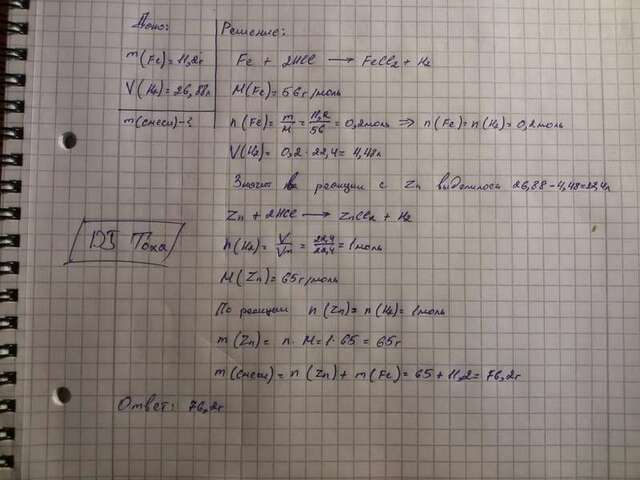 Дано:
m(Fe)=11,2г
V(H₂)=26,88л
m(смеси)-?
Решение:
Fe + 2HCl → FeCl₂ + H₂
M(Fe)=56г/моль
n(Fe)= m/M = 11,2/56 = 0,2моль ⇒ n(Fe)=n(H₂)=0,2моль
V(H₂)= 0,2·22,4=4,48л
Значит в реакции с Zn выделилось 26,88-4,48=22,4л
Zn + 2HCl → ZnCl₂ + H₂
n(H₂)= V/Vm = 22,4/22,4 = 1моль
M(Zn)=65г/моль
По реакции n(Zn)=n(H₂)=1моль
m(Zn)= n·M=1·65=65г
m(смеси)= n(Zn)+m(Fe)=65+11,2=76,2г
Ответ: 76,2г
DJ Тоха